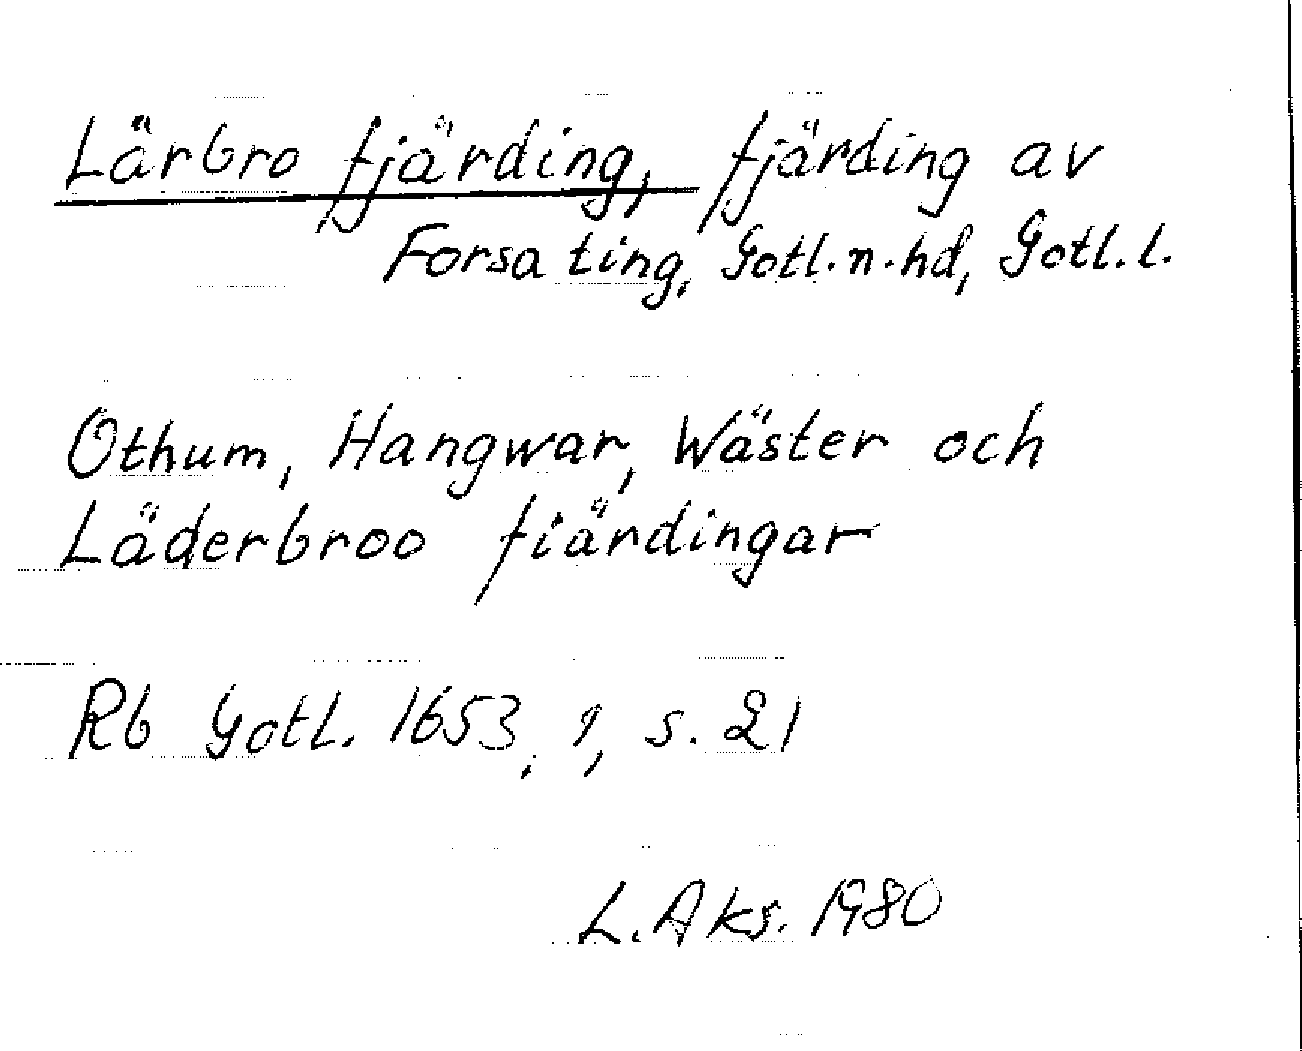 Lärbro fjärding, fjärding av
Forsa ting, Gotl.n.hd, Gotl.l.
Othum, Hangwar, Wäster och
Läderbroo fiärdingar
Rb Gotl. 1653, 1, s. 21
L. Aks. 1980